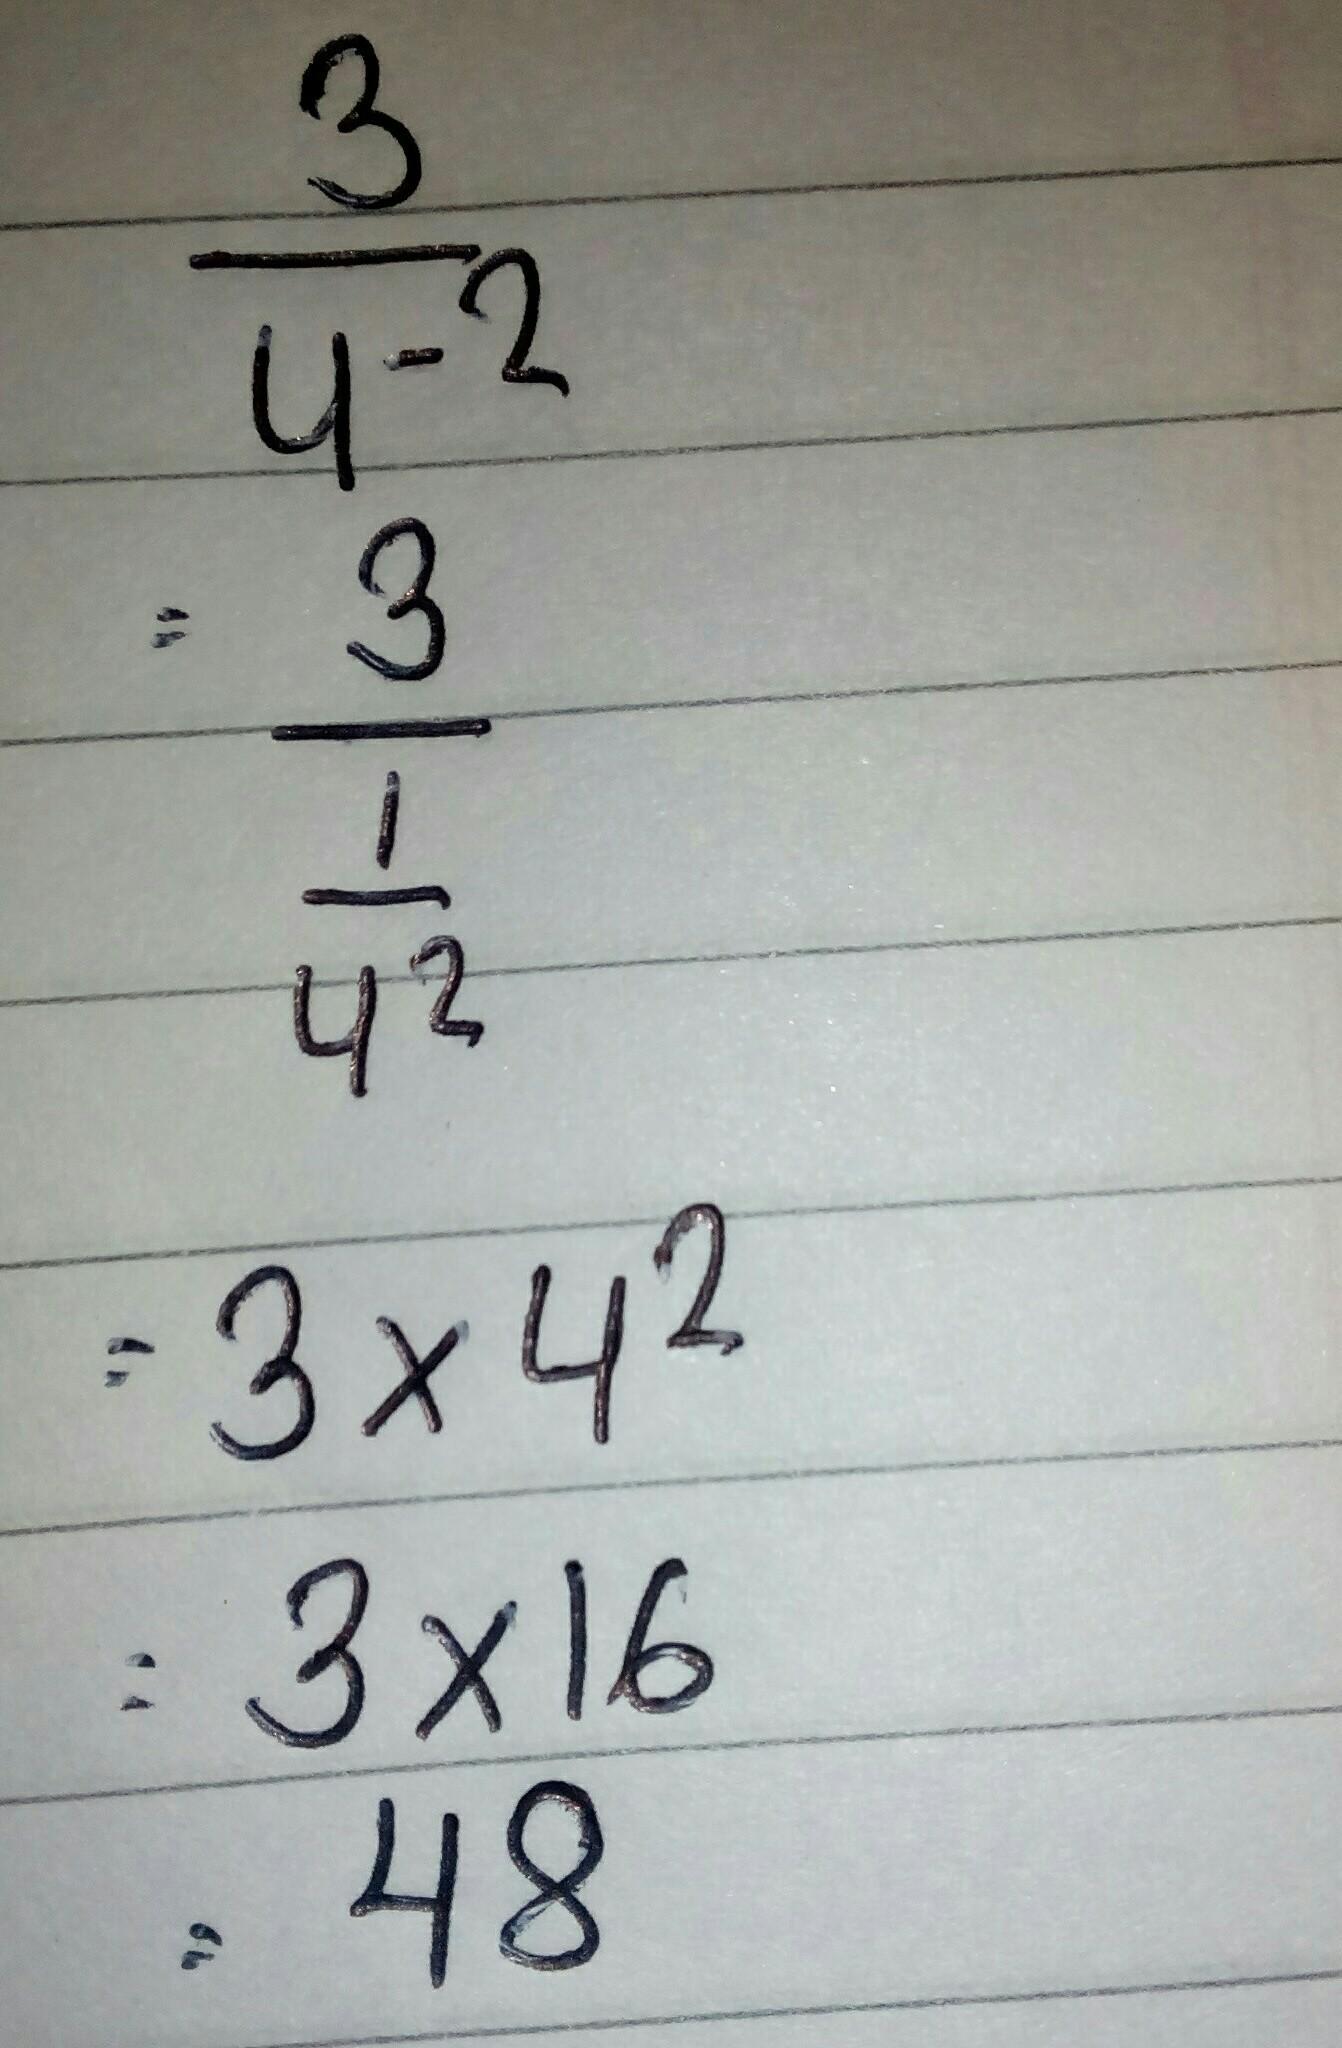 3
4⁻²
= 3
1
4²
= 3 x 4²
= 3 x 16
= 48